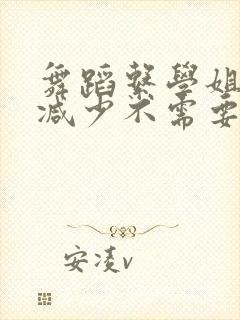 舞蹈繫學姐
减少不需要
安凌v